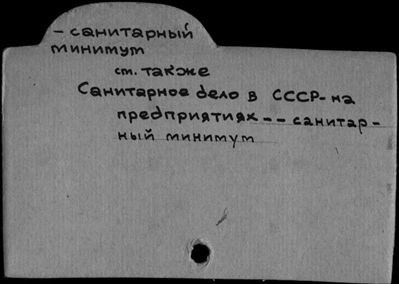 - санитарный
минимум
см. также
Санитарное дело в СССР - на
предприятиях -- санитар-
ный минимум